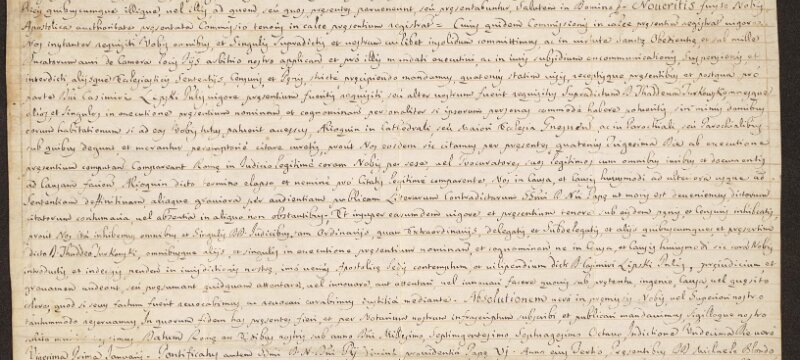 alijs quibuscumque illique, vel illis ad quem, seu quos presentes pervenerint, seu presentabuntur, salutem in Domino. Noveritis juxta Nobis
Apostolica authoritate presentata Commissio tenoris in calce presentium registrat. Cuius quidem Commissionis in calce presentium registrat vigore
Vos instanter requisiti Vobis omnibus, et Singulis Supradictis et vestrum cuilibet insolidum committimus, ac in virtute sanctæ Obedientiæ et sub mille
Ducatorum auri de Camera locis Pijs arbitrio nostro applicand et pro illis mandati executivi ac in iuris subsidium excommunicationis, suspensionis et
interdicti alijsque Ecclesiasticis Sententijs Censuris et Penis, stricte præcipiendo mandamus, quatenus statim visis, receptisque presentibus et postquam pro
parte Dni Casimiri Lipski vigore presentium fueritis requisiti seu alter vestrum fuerit requisitus Supradictum D. Thaddeum Turkowsky omnesque
alios et Singulos in executione presentium nominand et cognominand personaliter si ipsorum personas commode habere potueritis, sin minus domibus
eorum habitationum si ad eas Vobis tutus patuerit accessus, Alioquin in Cathedrali seu Maiori Ecclesia Gnesnen, ac in Parochiali seu Parochialibus
sub quibus degunt et morantur peremptorie citare curetis, prout Nos eosdem sic citamus per presentes, quatenus Trigesima Die ab executione
presentium computan Compareant Romæ in Iudicio legitime coram Nobis per se se vel Procuratores suos legitimos cum omnibus iuribus et
ad Causam facien. Alioquin dicto termino elapso et nemine pro Citatis legitime comparente. Nos in Causa, et Causis huiusmodi ad ulteriora usque ad
Sententiam diffinitivam aliaque graviora per audientiam publicam Literarum Contradictarum Dni N Papæ ut moris est deveniemus dictorum
citatorum contumacia vel absentia in aliquo non obstantibus. Et insuper earumdem vigore, et presentium tenore sub eisdem penis, et Censuris inhibeatis,
prout Nos inhibemus omnibus et Singulis DD Iudicibus, tam Ordinarijs, quam Extraordinarijs, delegatis, et Subdelegatis, et alijs quibuscumque et presertim
dicto D. Thaddeo Turkowsky, omnibusque alijs, et singulis in executione presentium nominand, et cognominand ne in Causa, et Causis huiusmodi sic coram Nobis
introductis et indecisis penden in iurisdictionis nostræ, imo verius Apostolicæ Sedis contemptum et vilipendium dicti D. Casimiri Lipski, præiudicium et
gravamen audeant, seu presumant quidquam attentare, vel innovare, aut attentari vel innovari facere quovis sub prætextu, ingenio, causa, vel quæsito
colore, quod si secus factum fuerit revocabimus, ac revocari curabimus iustitia mediante. Absolutionem vero in premissis Nobis vel Superiori nostro
tantummodo reservamus. In quorum fidem has presentes fieri, et per Notarium nostrum infrascriptum subscribi et publicari mandavimus, sigillique nostri
Datum Romæ ex Ædibus nostris sub anno Dni Millesimo Septingentesimo Septuagesimo Octavo Indictione Undecima Die vero
Vicesima Prima Januarij. Pontificatus autem Dni N. N. Dni Pij Divina providentia Papæ VI. Anno eius Tertio Presentibus DD Michaele